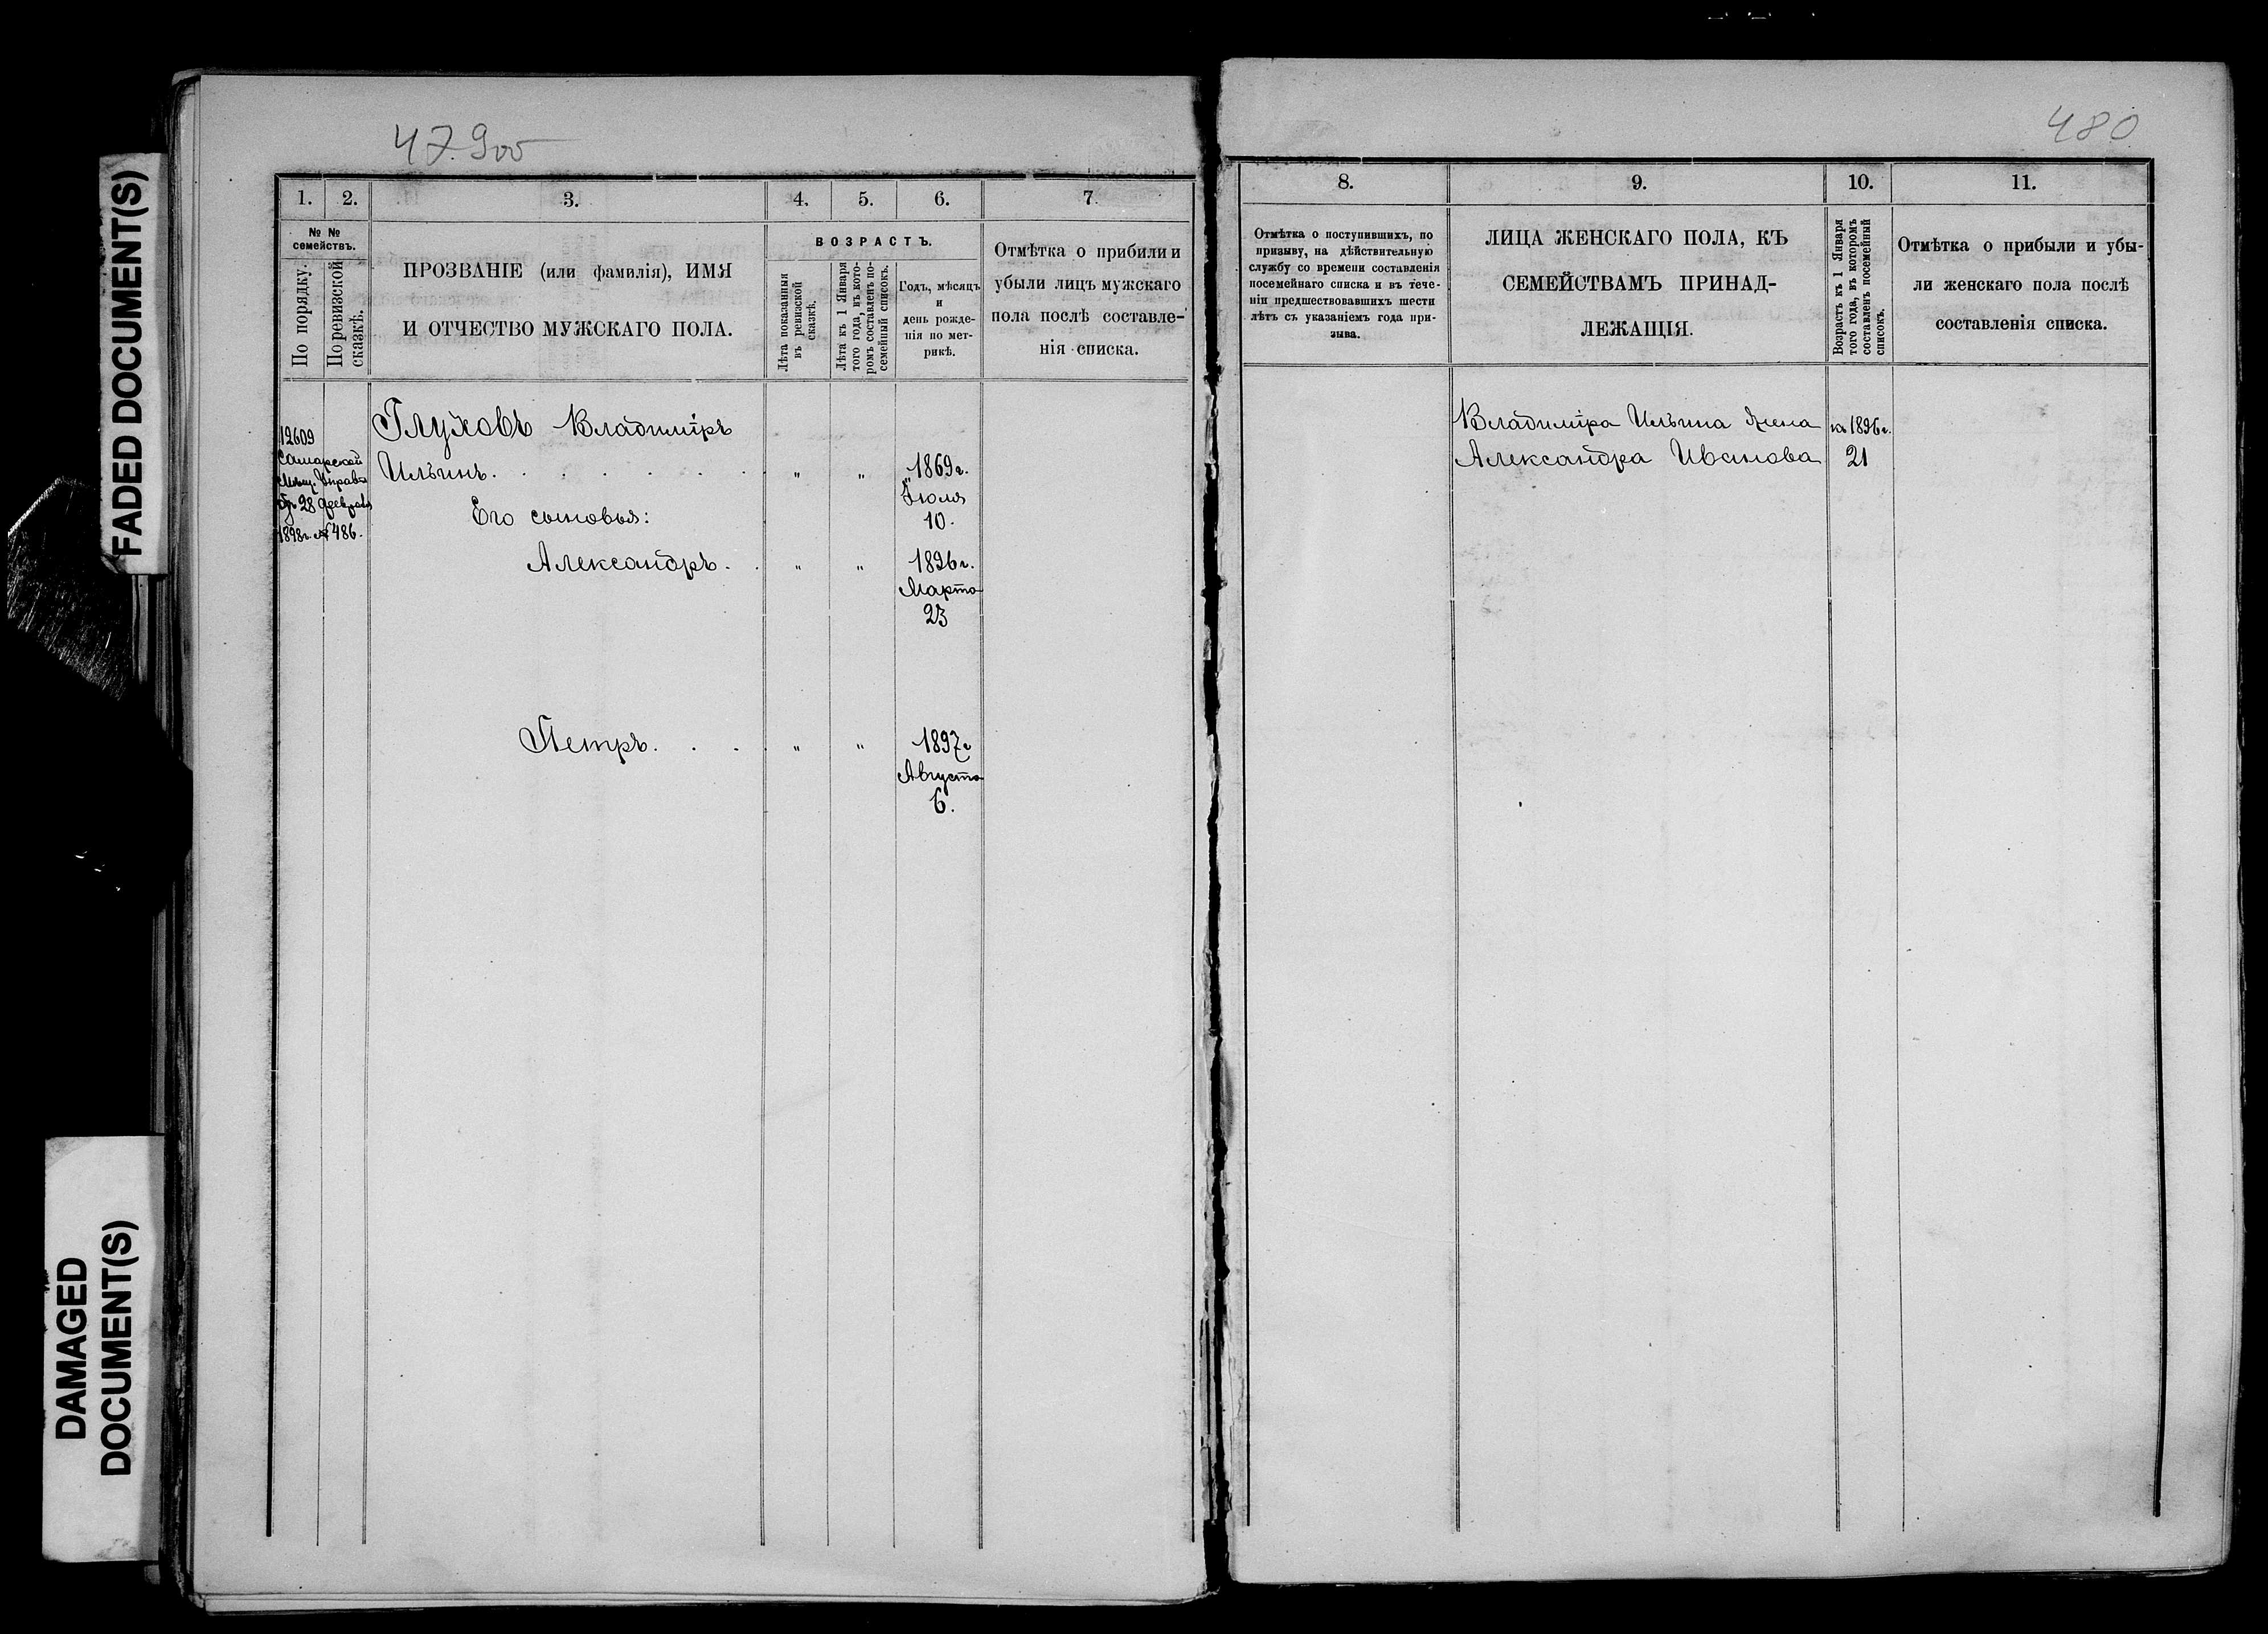 FADED DOCUMENT(S)
DAMAGED
DOCUMENT(S)
479об
1.
2.
3.
4.
5.
6.
7.
№ №
семействъ.
По порядку.
По ревизской
сказкѣ.
ПРОЗВАНІЕ (или фамилія), ИМЯ
И ОТЧЕСТВО МУЖСКАГО ПОЛА.
ВОЗРАСТЪ.
Лѣта показанныя
въ ревизской
сказкѣ.
Лѣта къ 1 Января
того года, въ кото-
ромъ составленъ по-
семейный списокъ.
Годъ, мѣсяцъ
и
день рожде-
нія по мет-
рикѣ.
Отмѣтка о прибыли и
убыли лицъ мужскаго
пола послѣ составле-
нія списка.
12609
Самарской
Мѣщ. Управы
28 Февраля
1898г. № 486.
Глуховъ Владиміръ
Ильинъ . . . . . . „ „ 1869г.
Іюля
10.
Его сыновья:
Александръ . . „ „ 1896г.
Марта
23
Петръ . . . „ „ 1897г
Августа
6.
480
8.
9.
10.
11.
Отмѣтка о поступившихъ, по
призыву, на дѣйствительную
службу со времени составленія
посемейнаго списка и въ тече-
ніи предшествовавшихъ шести
лѣтъ съ указаніемъ года при-
зыва.
ЛИЦА ЖЕНСКАГО ПОЛА, КЪ
СЕМЕЙСТВАМЪ ПРИНАД-
ЛЕЖАЩІЯ.
Возрастъ къ 1 Января
того года, въ которомъ
составленъ посемейный
списокъ.
Отмѣтка о прибыли и убы-
ли женскаго пола послѣ
составленія списка.
Владиміра Ильина жена къ 1896г.
Александра Иванова 21